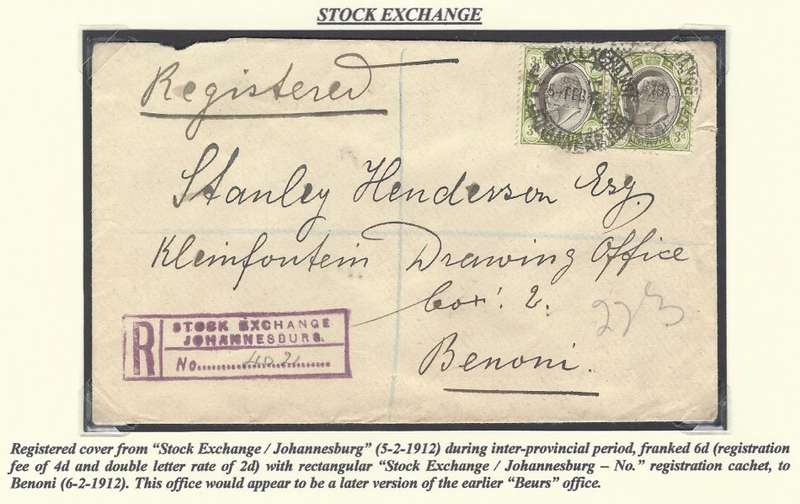 STOCK EXCHANGE
Registered
Stanley Henderson Esq.
Kleinfontein Drawing Office
Box: 2.
Benoni.
R
STOCK EXCHANGE
JOHANNESBURG.
No.
Registered cover from “Stock Exchange / Johannesburg” (5-2-1912) during inter-provincial period, franked 6d (registration
fee of 4d and double letter rate of 2d) with rectangular “Stock Exchange / Johannesburg – No.” registration cachet, to
Benoni (6-2-1912). This office would appear to be a later version of the earlier “Beurs” office.